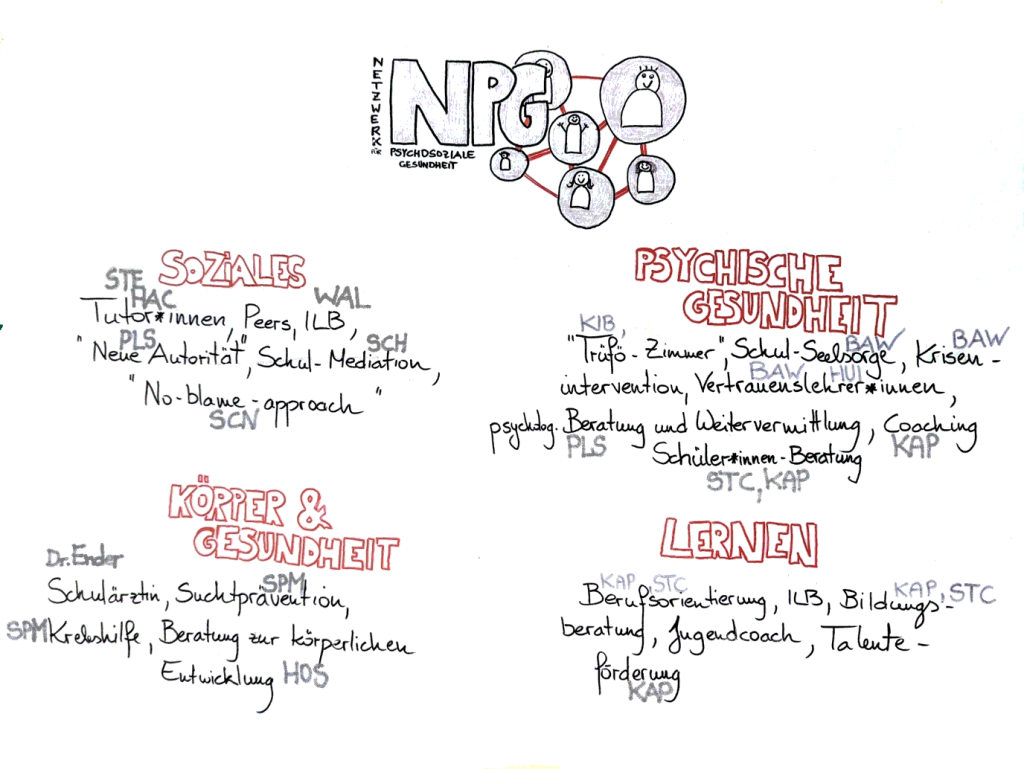 NETZWERK
FÜR
NPG
PSYCHOSOZIALE
GESUNDHEIT
SOZIALES
STE
HAC WAL
Tutor*innen, Peers, ILB,
PLS SCH
"Neue Autorität", Schul-Mediation,
"No-blame-approach"
SCN
PSYCHISCHE
GESUNDHEIT
KIB, BAW BAW
"Trüfö-Zimmer", Schul-Seelsorge, Krisen-
BAW HUI
intervention, Vertrauenslehrer*innen,
psycholog. Beratung und Weitervermittlung, Coaching
PLS KAP
Schüler*innen-Beratung
STC, KAP
KÖRPER &
GESUNDHEIT
Dr. Ender
SPM
Schulärztin, Suchtprävention,
SPM Krebshilfe, Beratung zur körperlichen
Entwicklung HOS
LERNEN
KAP, STC KAP, STC
Berufsorientierung, ILB, Bildungs-
beratung, Jugendcoach, Talente-
förderung
KAP